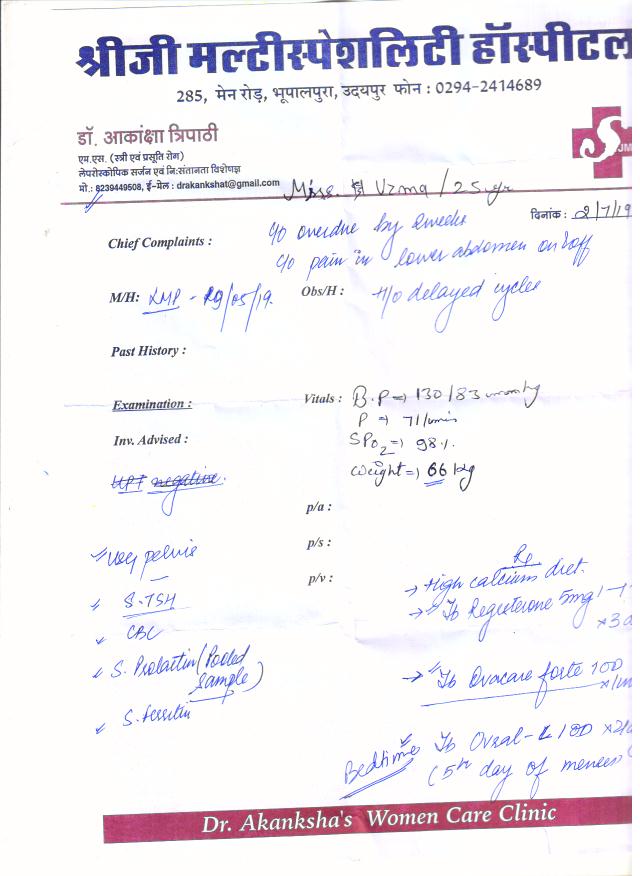 श्रीजी मल्टीस्पेशलिटी हॉस्पीटल
285, मेन रोड़, भूपालपुरा, उदयपुर फोन : 0294-2414689
डॉ. आकांक्षा त्रिपाठी
एम.एस. (स्त्री एवं प्रसूति रोग)
लेपरोस्कोपिक सर्जन एवं नि:संतानता विशेषज्ञ
मो.: 8239449508, ई-मेल : drakankshat@gmail.com
S
JM
Uzma / 25 yr
दिनांक : 2/7/19
Chief Complaints : c/o overdue by 2 weeks
c/o pain in lower abdomen on & off
M/H: LMP - 19/05/19. Obs/H : H/o delayed cycles
Past History :
Examination : Vitals : B.P => 130/83 mmHg
P => 71/min
Inv. Advised : SPO2 => 98%
Weight => 66 kg
UPT negative.
p/a :
p/s :
USG pelvis
p/v :
Rx
→ High calcium diet.
S. TSH
→ Tb Regesterone 5mg 1-1
x 3d
CBC
S. Prolactin (Pooled
Sample)
→ Tb Ovacare forte 1OD
S. ferritin
Bedtime Tb Ovral-L 1OD x 21d
(5th day of menses
Dr. Akanksha's Women Care Clinic